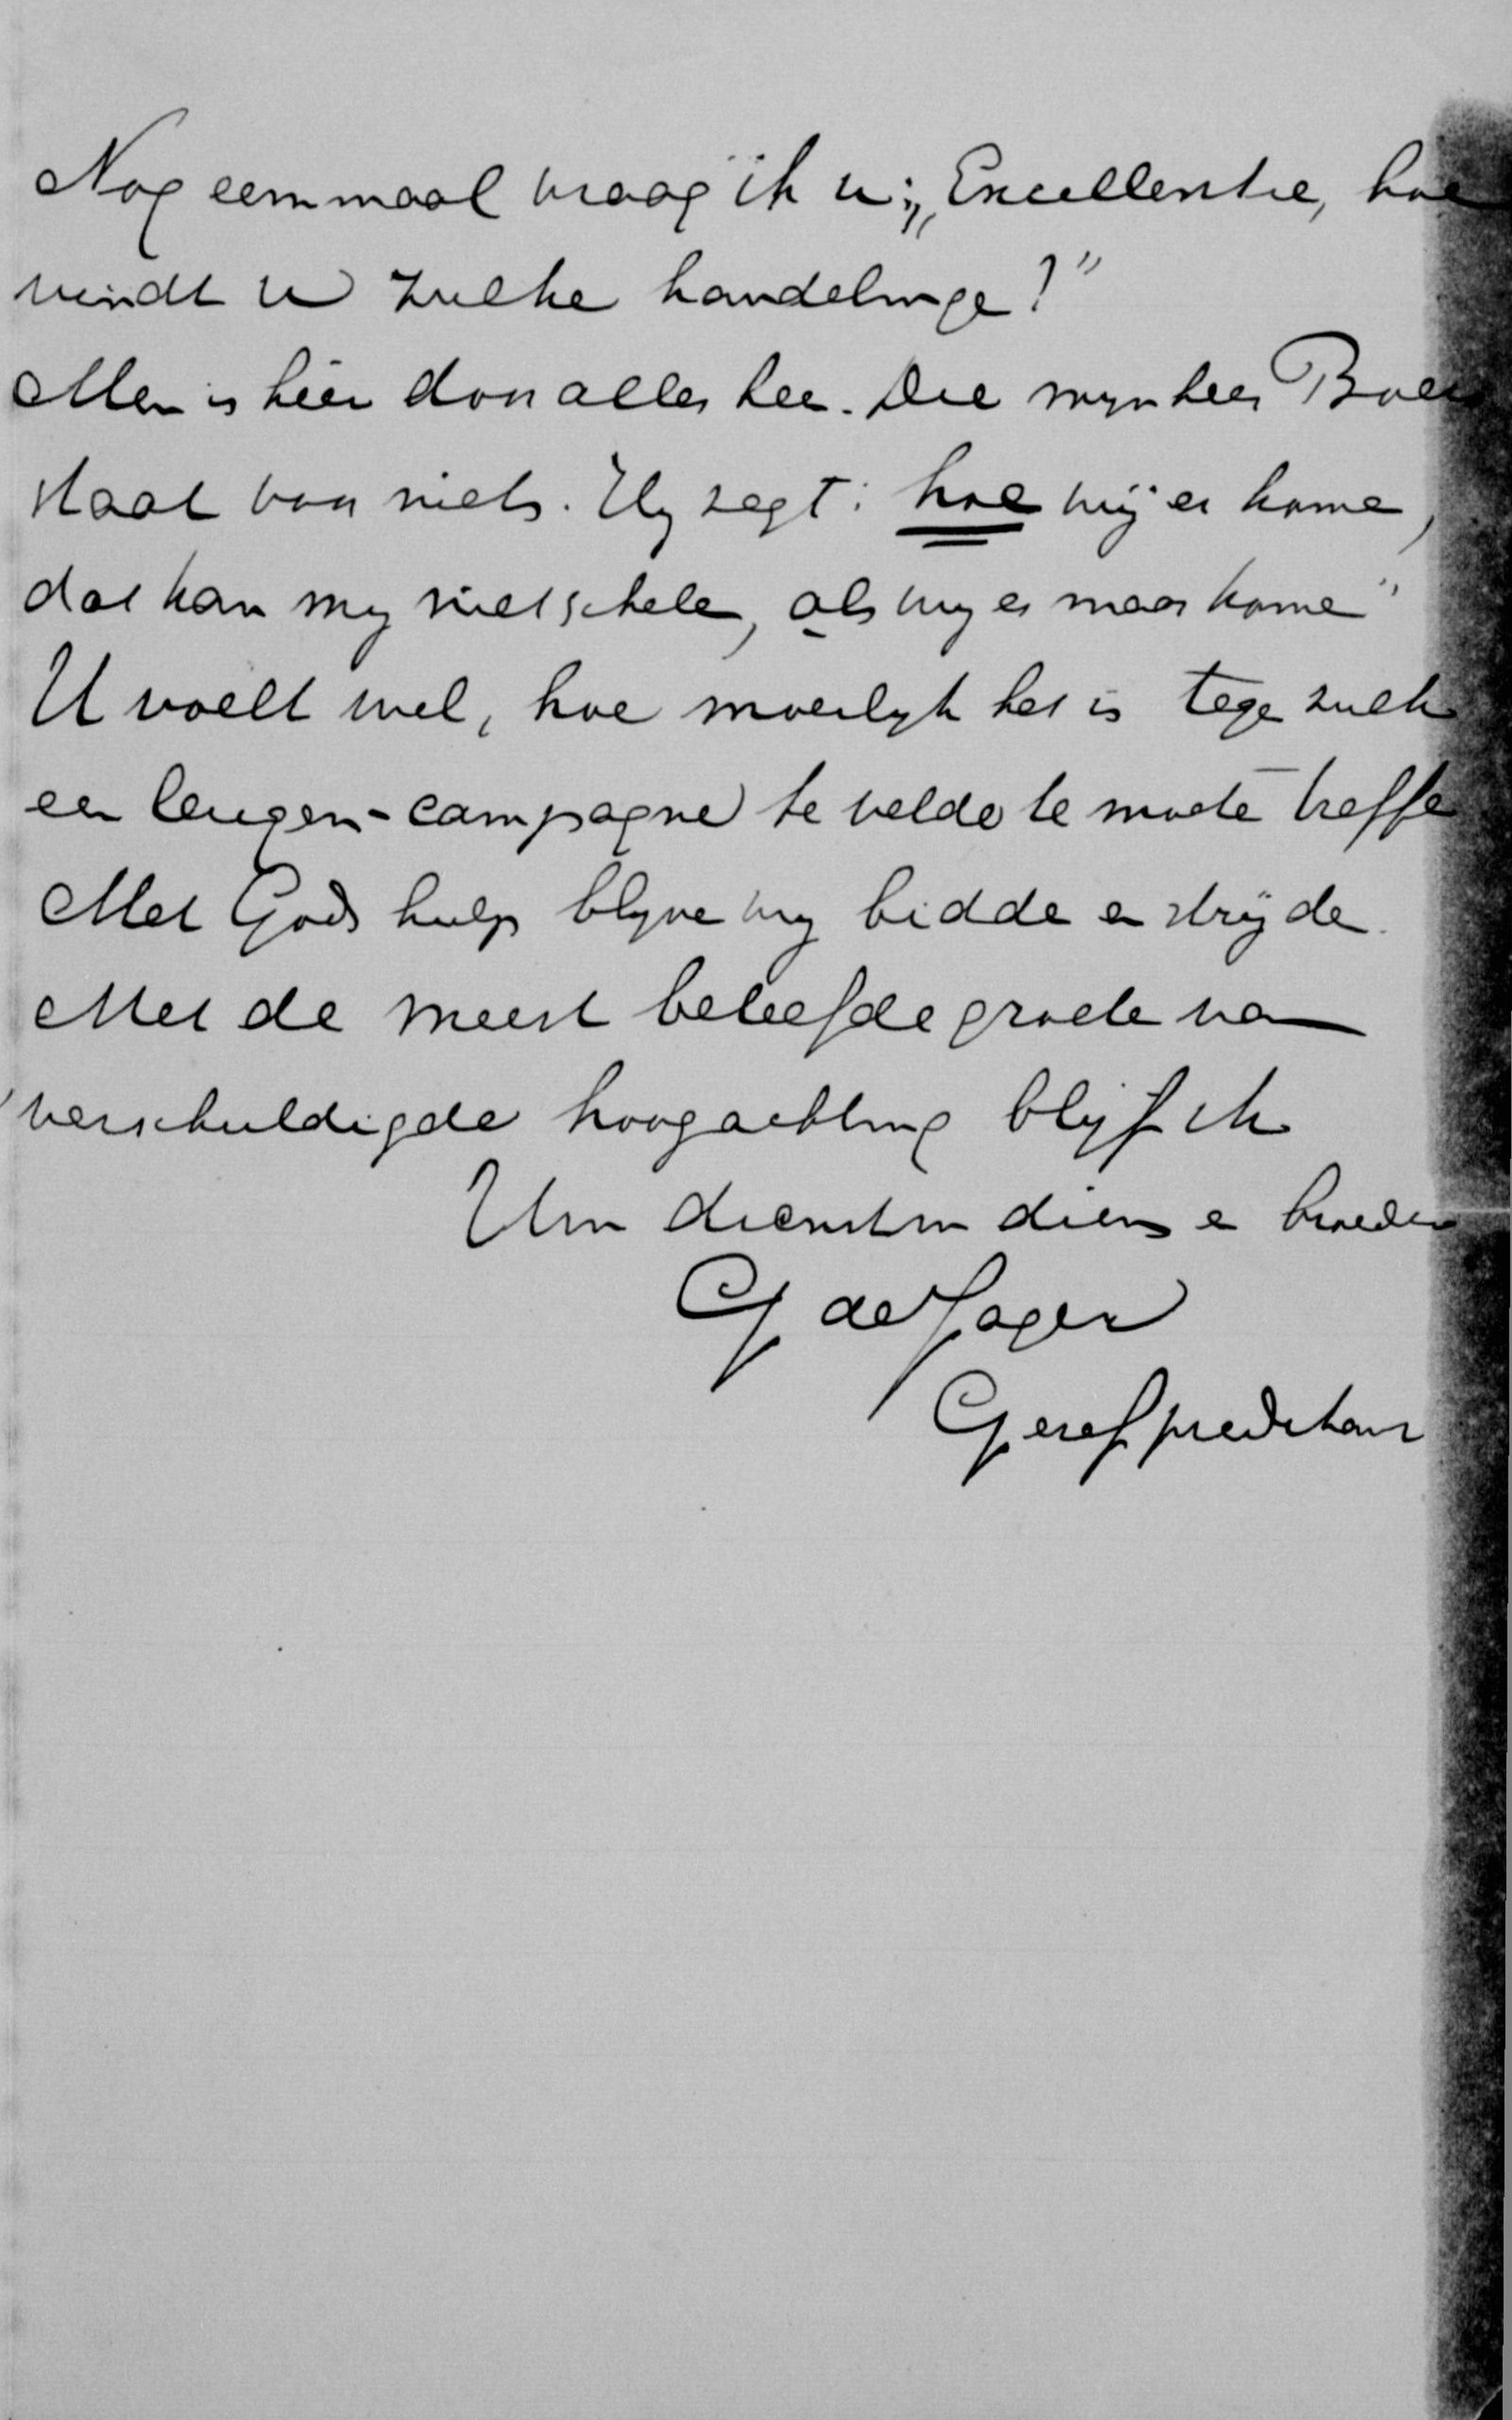 Nog eenmaal vraag ik u: „Excellentie, hoe
vindt u zulke handelinge?"
Men is hier door alles hee. Die mynheer Boer
staat voor niets. Hy zegt: hoe wij er kome,
dat kan my niet schele, als wy er maar kome"
U voelt wel, hoe moeilyk het is tege zulk
een leugen-campagne te velde te moete treffe
Met Gods hulp blyve wy bidde e stryde.
Met de meest beleefde groete van
verschuldigde hoogachting blijf ik
Uw dienstw dien e broeder
G de Jager
Geref predikant